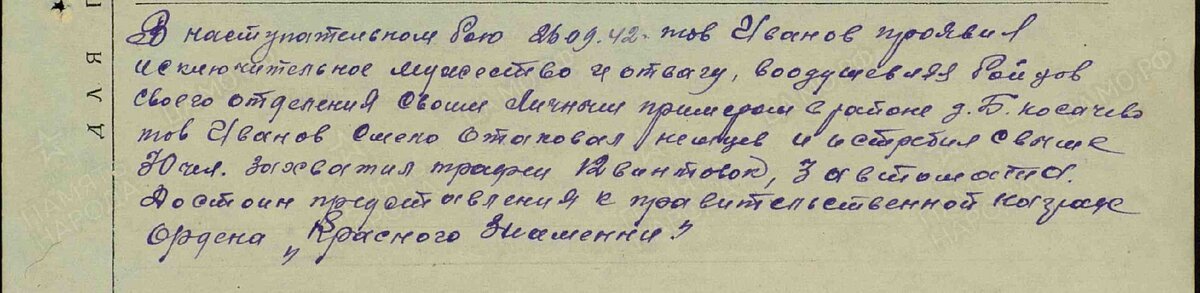 В наступательном бою 26.09.42. тов Иванов проявил
исключительное мужество и отвагу, воодушевляя бойцов
своего отделения своим личным примером в районе д. Б. Косачево
тов Иванов смело отаковал немцев и истребил свыше
30 чел. захватил трофеи 12 винтовок, 3 автомата.
Достоин представления к правительственной награде
Ордена "Красного Знаменни"
ДЛЯ